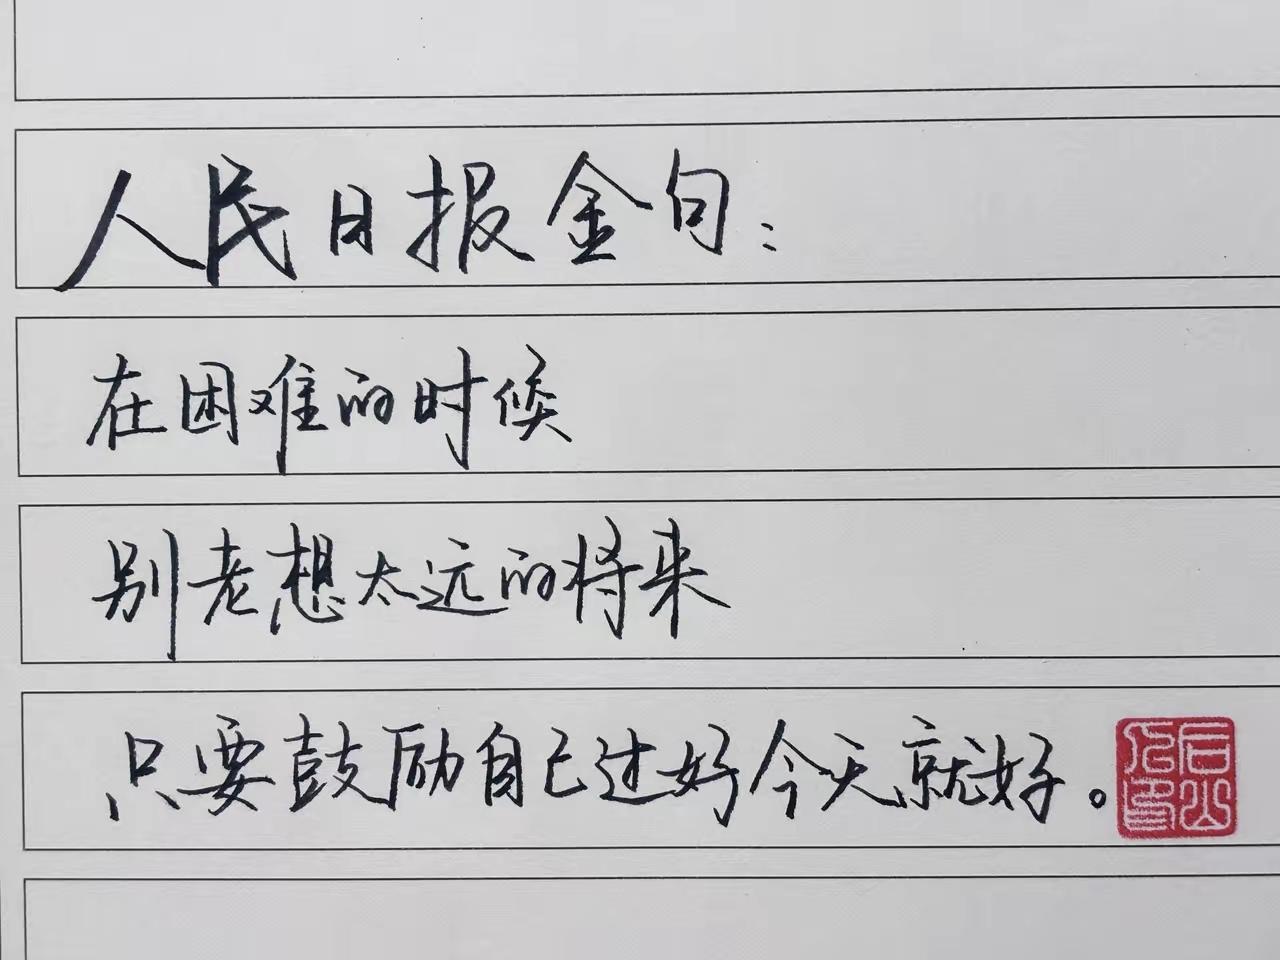 人民日报金句：
在困难的时候
别老想太远的将来
只要鼓励自己过好今天就好。